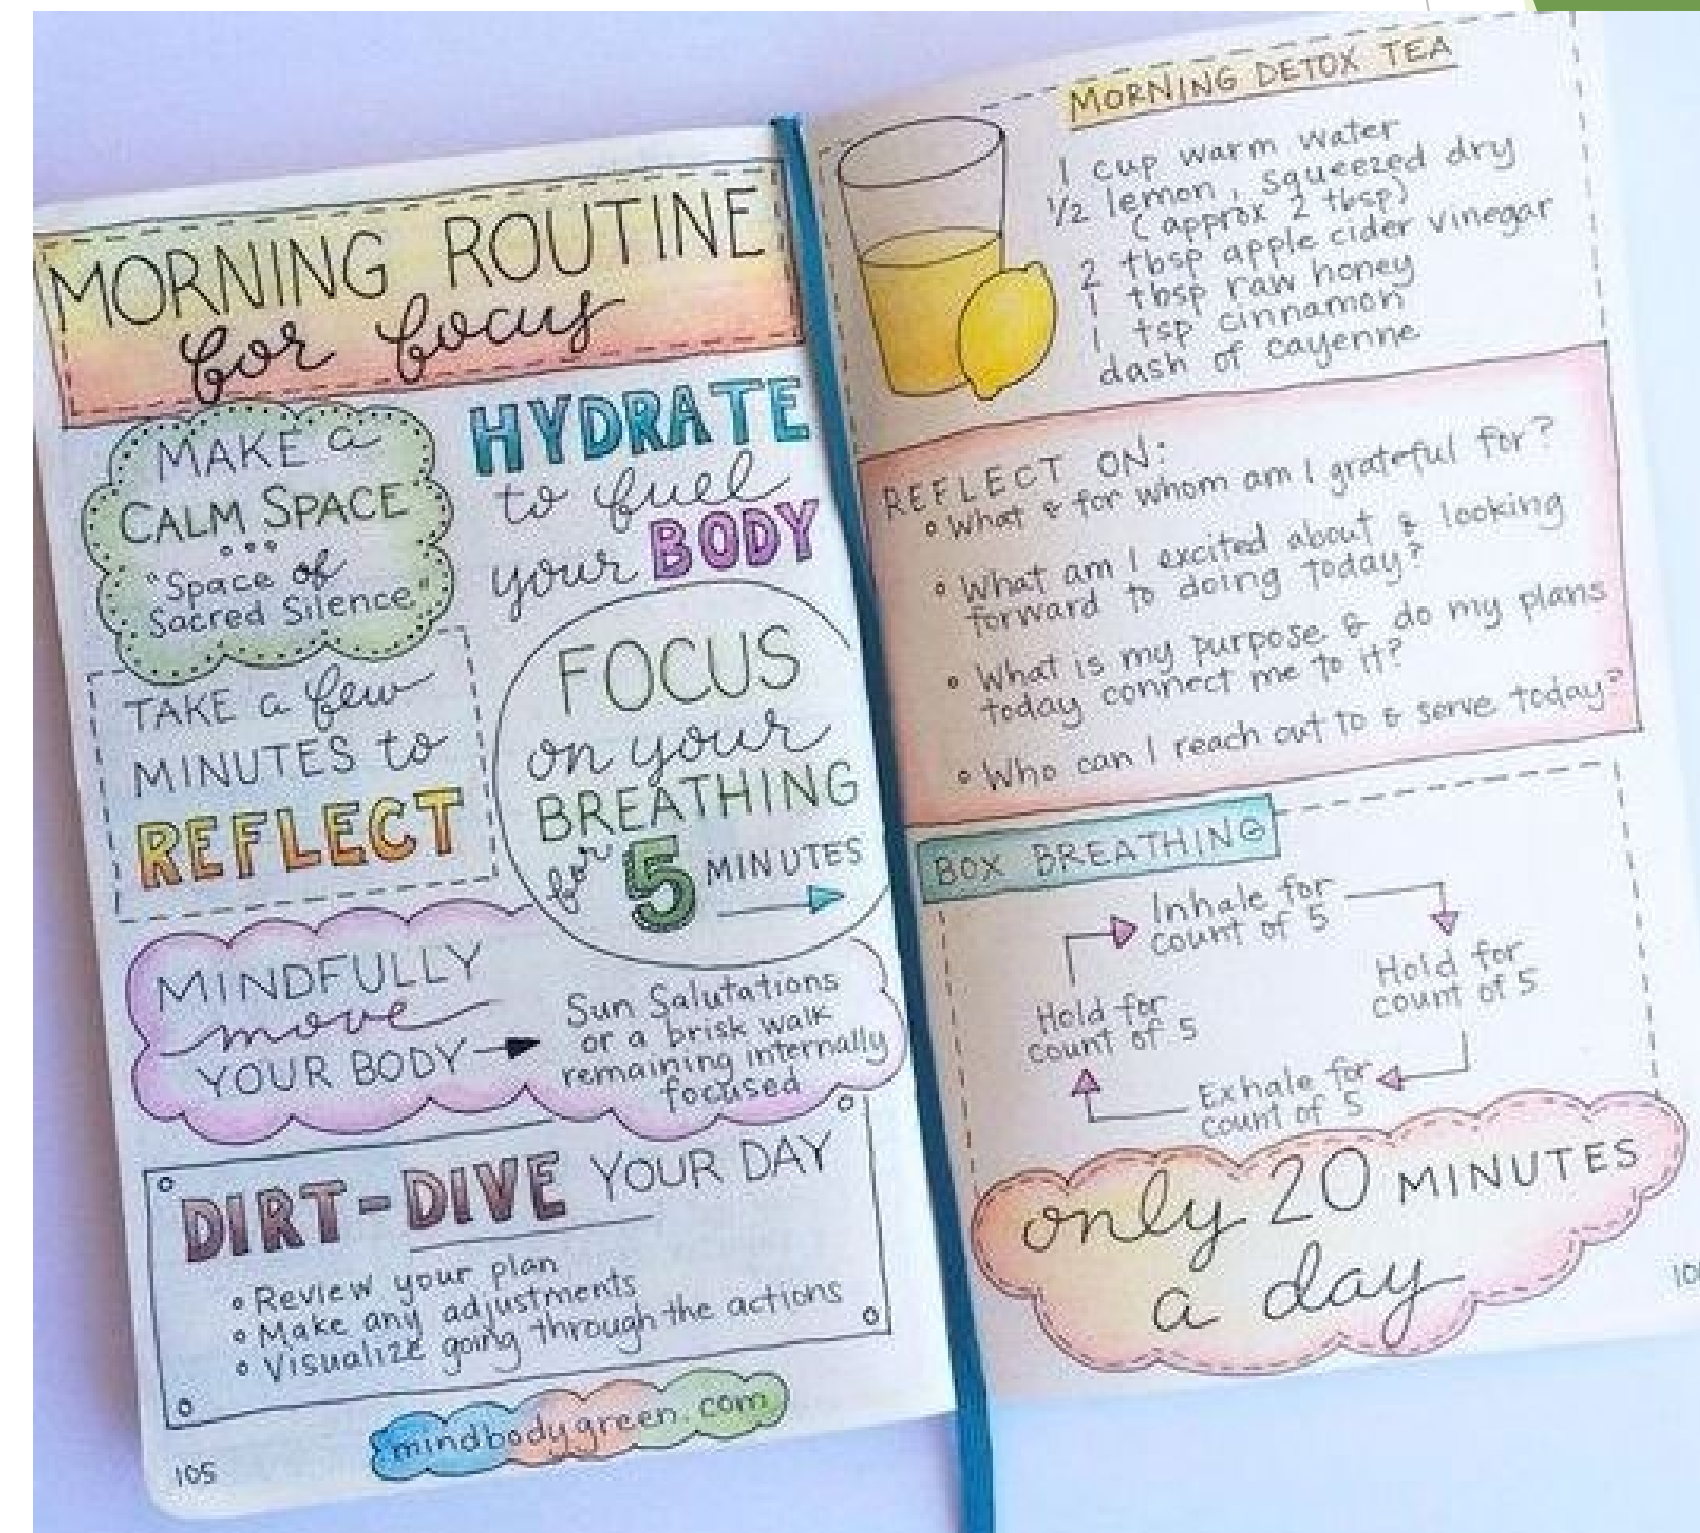 MORNING ROUTINE
for focus
MAKE a
CALM SPACE
"Space of
Sacred Silence"
HYDRATE
to fuel
your BODY
TAKE a few
MINUTES to
REFLECT
FOCUS
on your
BREATHING
for 5 MINUTES
MINDFULLY
move
YOUR BODY
Sun Salutations
or a brisk walk
remaining internally
focused
DIRT-DIVE YOUR DAY
• Review your plan
• Make any adjustments
• Visualize going through the actions
mindbodygreen.com
105
MORNING DETOX TEA
1 cup warm water
1/2 lemon, squeezed dry
(approx 2 tbsp)
2 tbsp apple cider vinegar
1 tbsp raw honey
1 tsp cinnamon
dash of cayenne
REFLECT ON:
• What & for whom am I grateful for?
• What am I excited about & looking
forward to doing today?
• What is my purpose & do my plans
today connect me to it?
• Who can I reach out to & serve today?
BOX BREATHING
Inhale for
count of 5
Hold for
count of 5
Exhale for
count of 5
Hold for
count of 5
only 20 MINUTES
a day